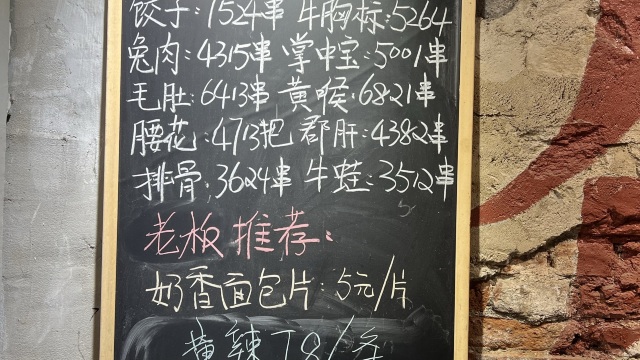 饺子:1524串 牛胸标:5264
兔肉:4315串 掌中宝:5001串
毛肚:6413串 黄喉:6821串
腰花:4713把 郡肝:4382串
排骨:3624串 牛蛙:3512串
老板推荐:
奶香面包片:5元/片
黄辣丁8/条